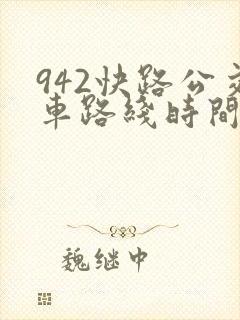 942快路公交
車路綫時間
魏继中